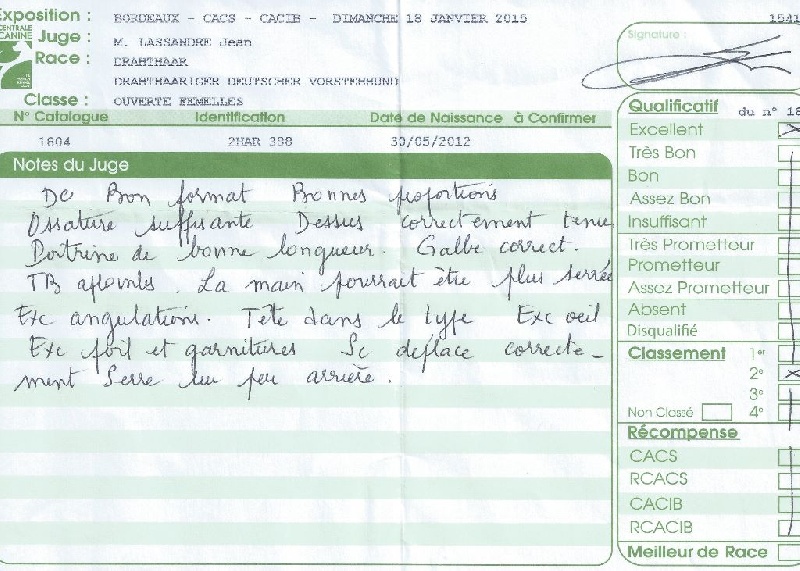 Exposition : BORDEAUX - CACS - CACIB - DIMANCHE 18 JANVIER 2015 1541
CENTRALE CANINE
Juge : M. LASSANDRE Jean
Race : DRAHTHAAR
DRAHTHAARIGER DEUTSCHER VORSTEHHUND
Classe : OUVERTE FEMELLES
Signature :
N° Catalogue Identification Date de Naissance à Confirmer
1604 2HAR 398 30/05/2012
Notes du Juge
De Bon format Bonnes proportions
Ossature suffisante Dessus correctement tenue
Poitrine de bonne longueur. Galbe correct.
TB aplombs. La main pourrait être plus serrée
Exc angulations. Tête dans le type Exc oeil
Exc poil et garnitures Se déplace correcte-
ment Serre un peu arrière.
Qualificatif du n° 18
Excellent
Très Bon
Bon
Assez Bon
Insuffisant
Très Prometteur
Prometteur
Assez Prometteur
Absent
Disqualifié
Classement 1er
2e
3e
Non Classé 4e
Récompense
CACS
RCACS
CACIB
RCACIB
Meilleur de Race